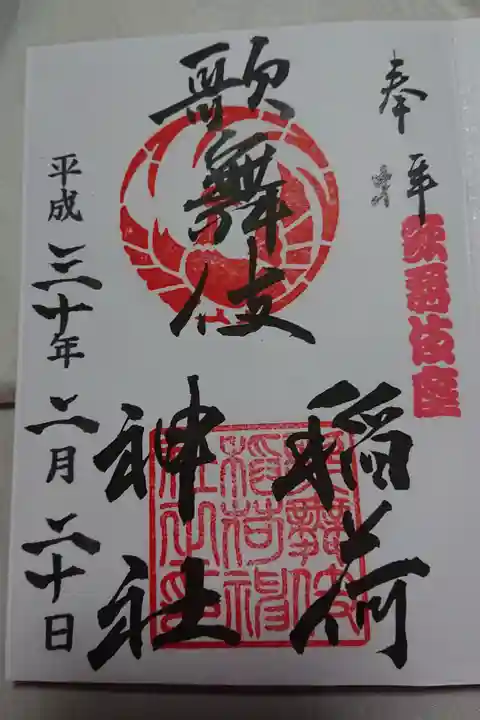 奉拝
歌舞伎座
歌舞伎
稲荷
神社
平成三十年二月二十日
歌舞伎
稲荷神
社之印